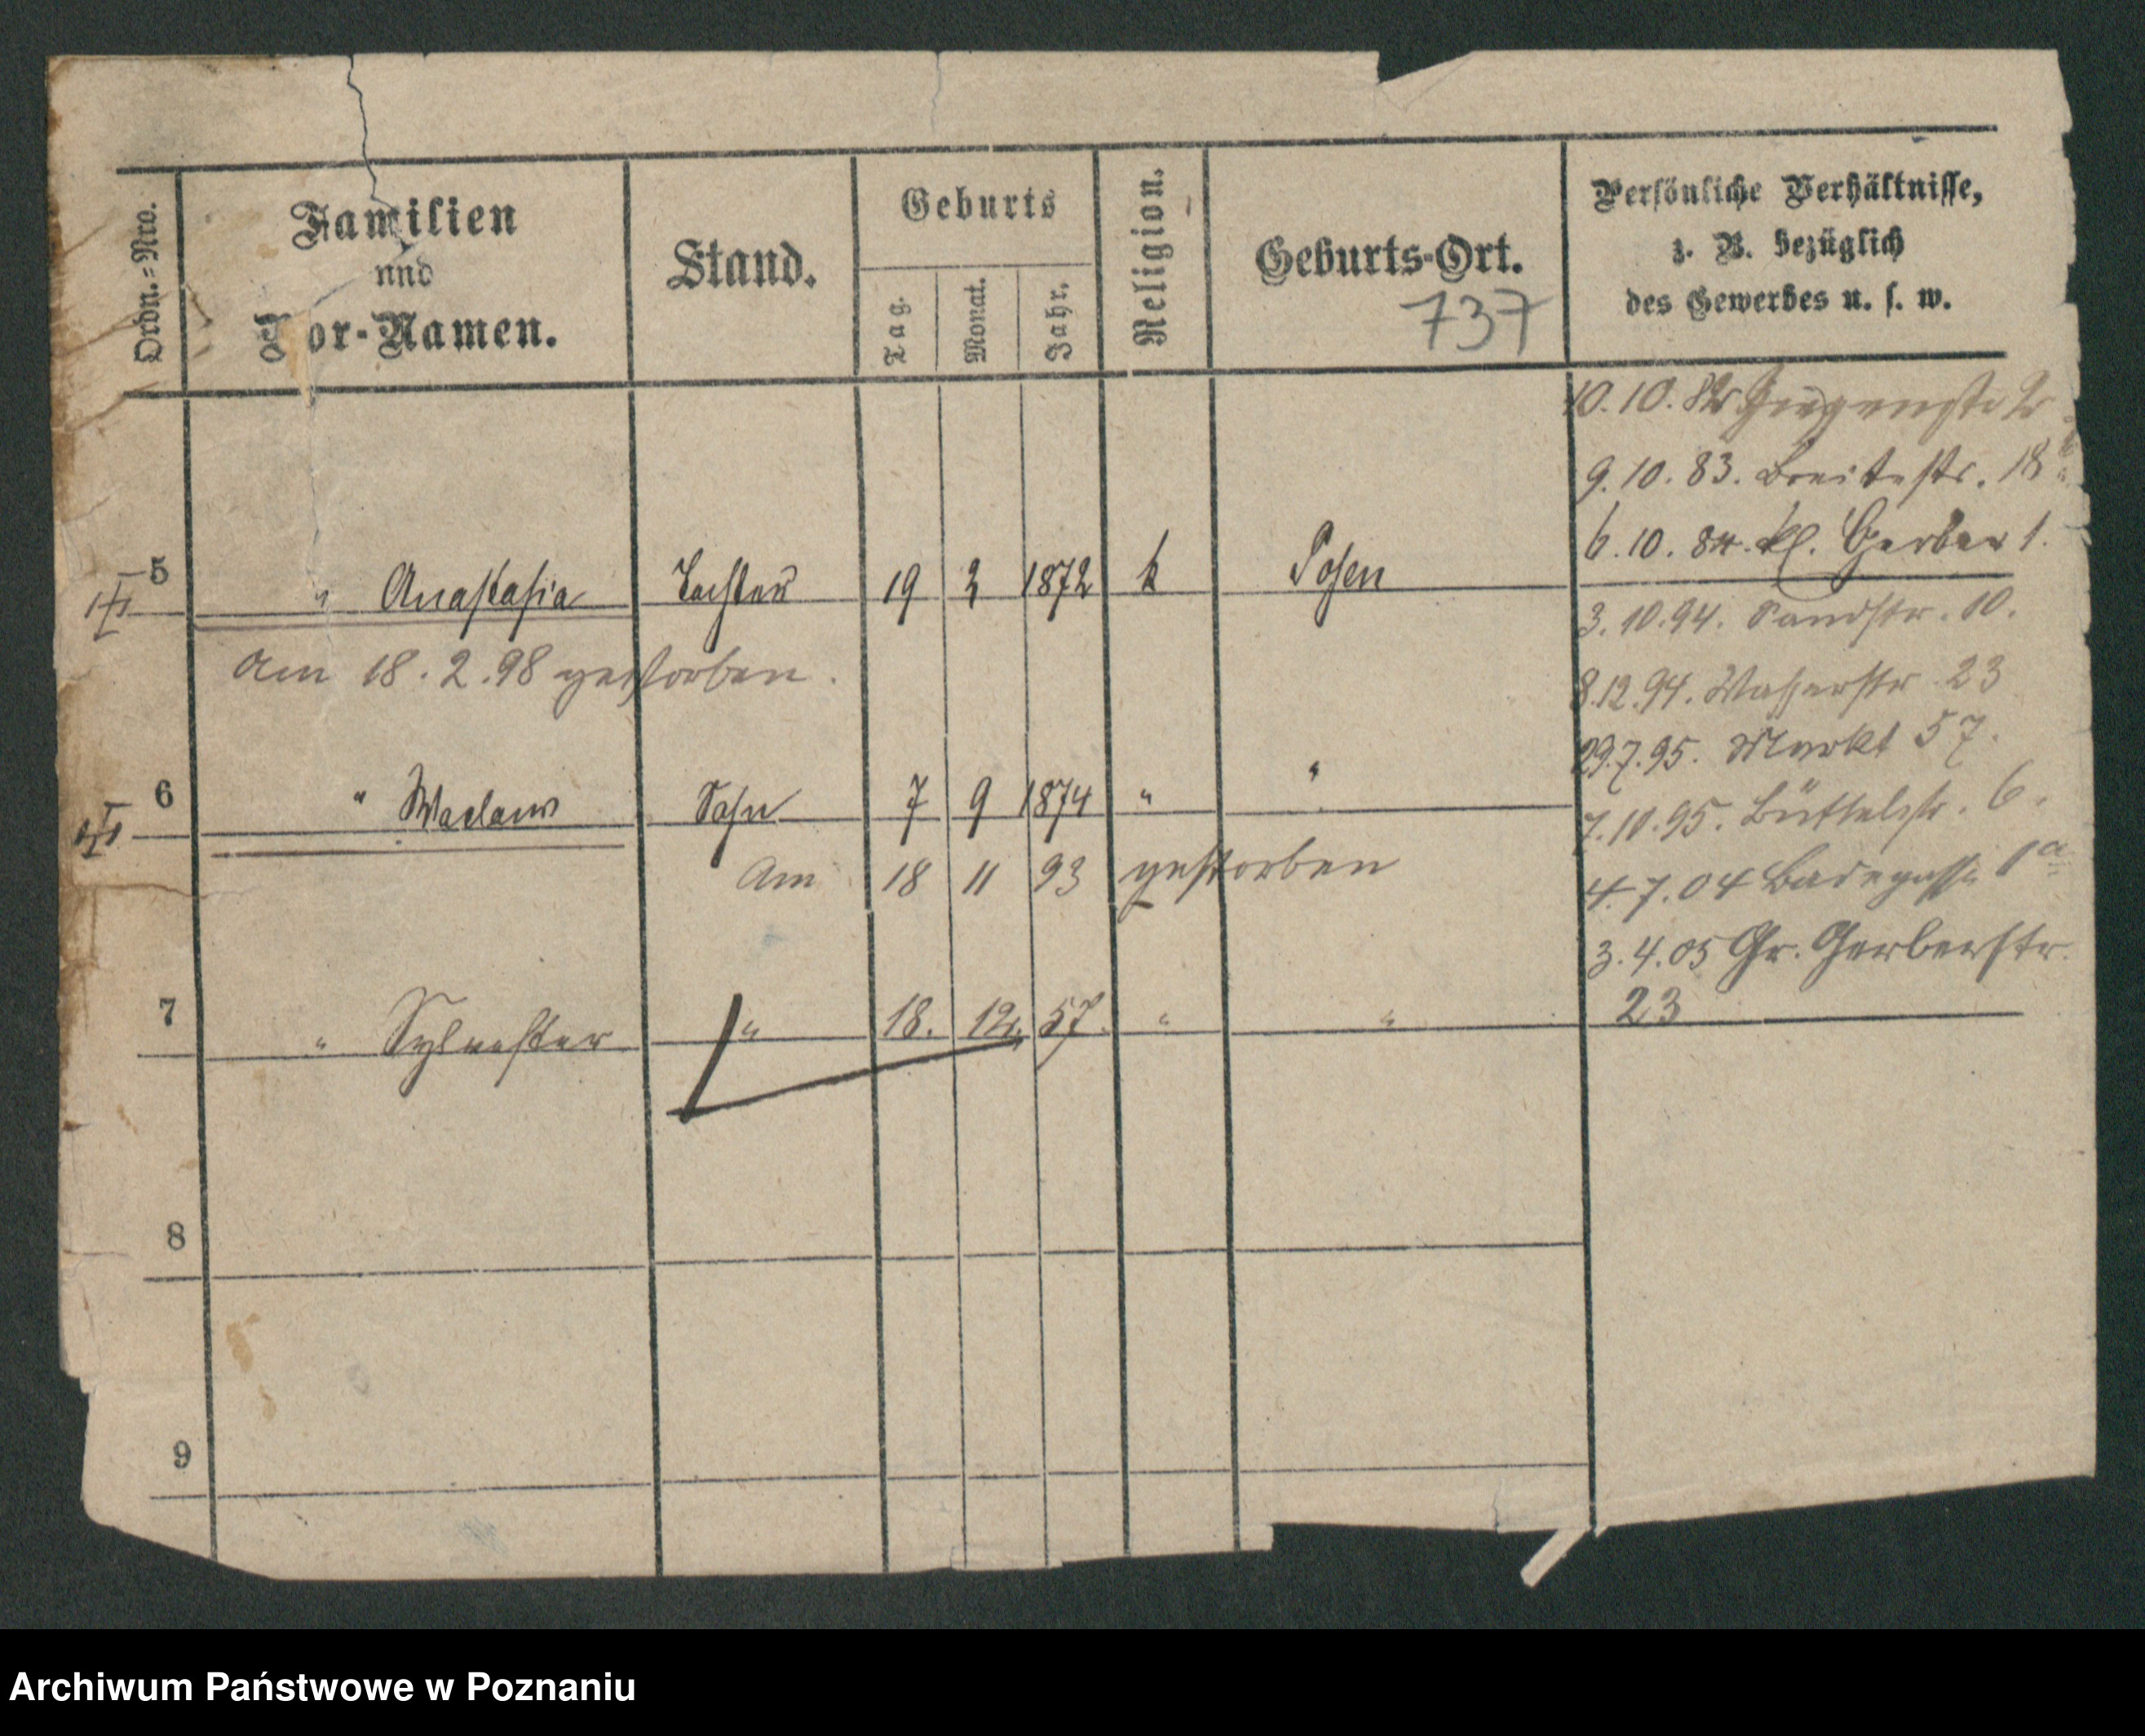 Ordn.=Nro.
Familien
und
Vor-Namen.
Stand.
Geburts
Tag.
Monat.
Jahr.
Religion.
Geburts-Ort.
737
Persönliche Verhältnisse,
z. B. bezüglich
des Gewerbes u. s. w.
10.10.82
9.10.83. Breitestr. 18
6.10.84. kl. Gerber 1.
5 " Anastasia Tochter 19 2 1872 k Posen
3.10.94. Sandstr. 10.
Am 18.2.98 gestorben.
8.12.94. Wasserstr 23
29.7.95. Markt 57.
6 " Waclaw Sohn 7 9 1874 " "
7.10.95. Büttelstr. 6.
Am 18 11 93 gestorben
4.7.04 Badegasse 1a
3.4.05 Gr. Gerberstr.
23
7 " Sylvester " 18. 12. 57. " "
8
9
Archiwum Państwowe w Poznaniu